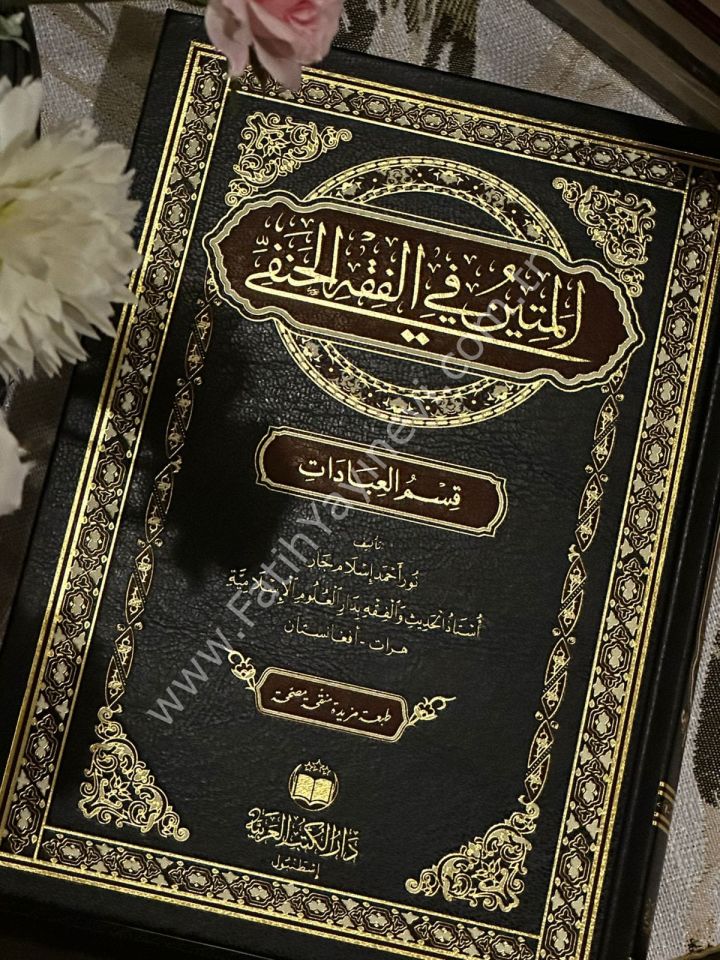 المَتِينُ فِي الفِقْهِ الحَنَفِيّ
قِسْمُ العِبَادَاتِ
تأليف
نُور أَحْمَد إِسْلَام جَار
أُسْتَاذُ الحَدِيثِ وَالفِقْهِ بِدَارِ العُلُومِ الإِسْلَامِيَّةِ
هرات - أفغانستان
طبعة مزيدة منقحة مصححة
دَارُ الكُتُبِ العَرَبِيَّةِ
إسطنبول
www.FatihYayinevi.com.tr